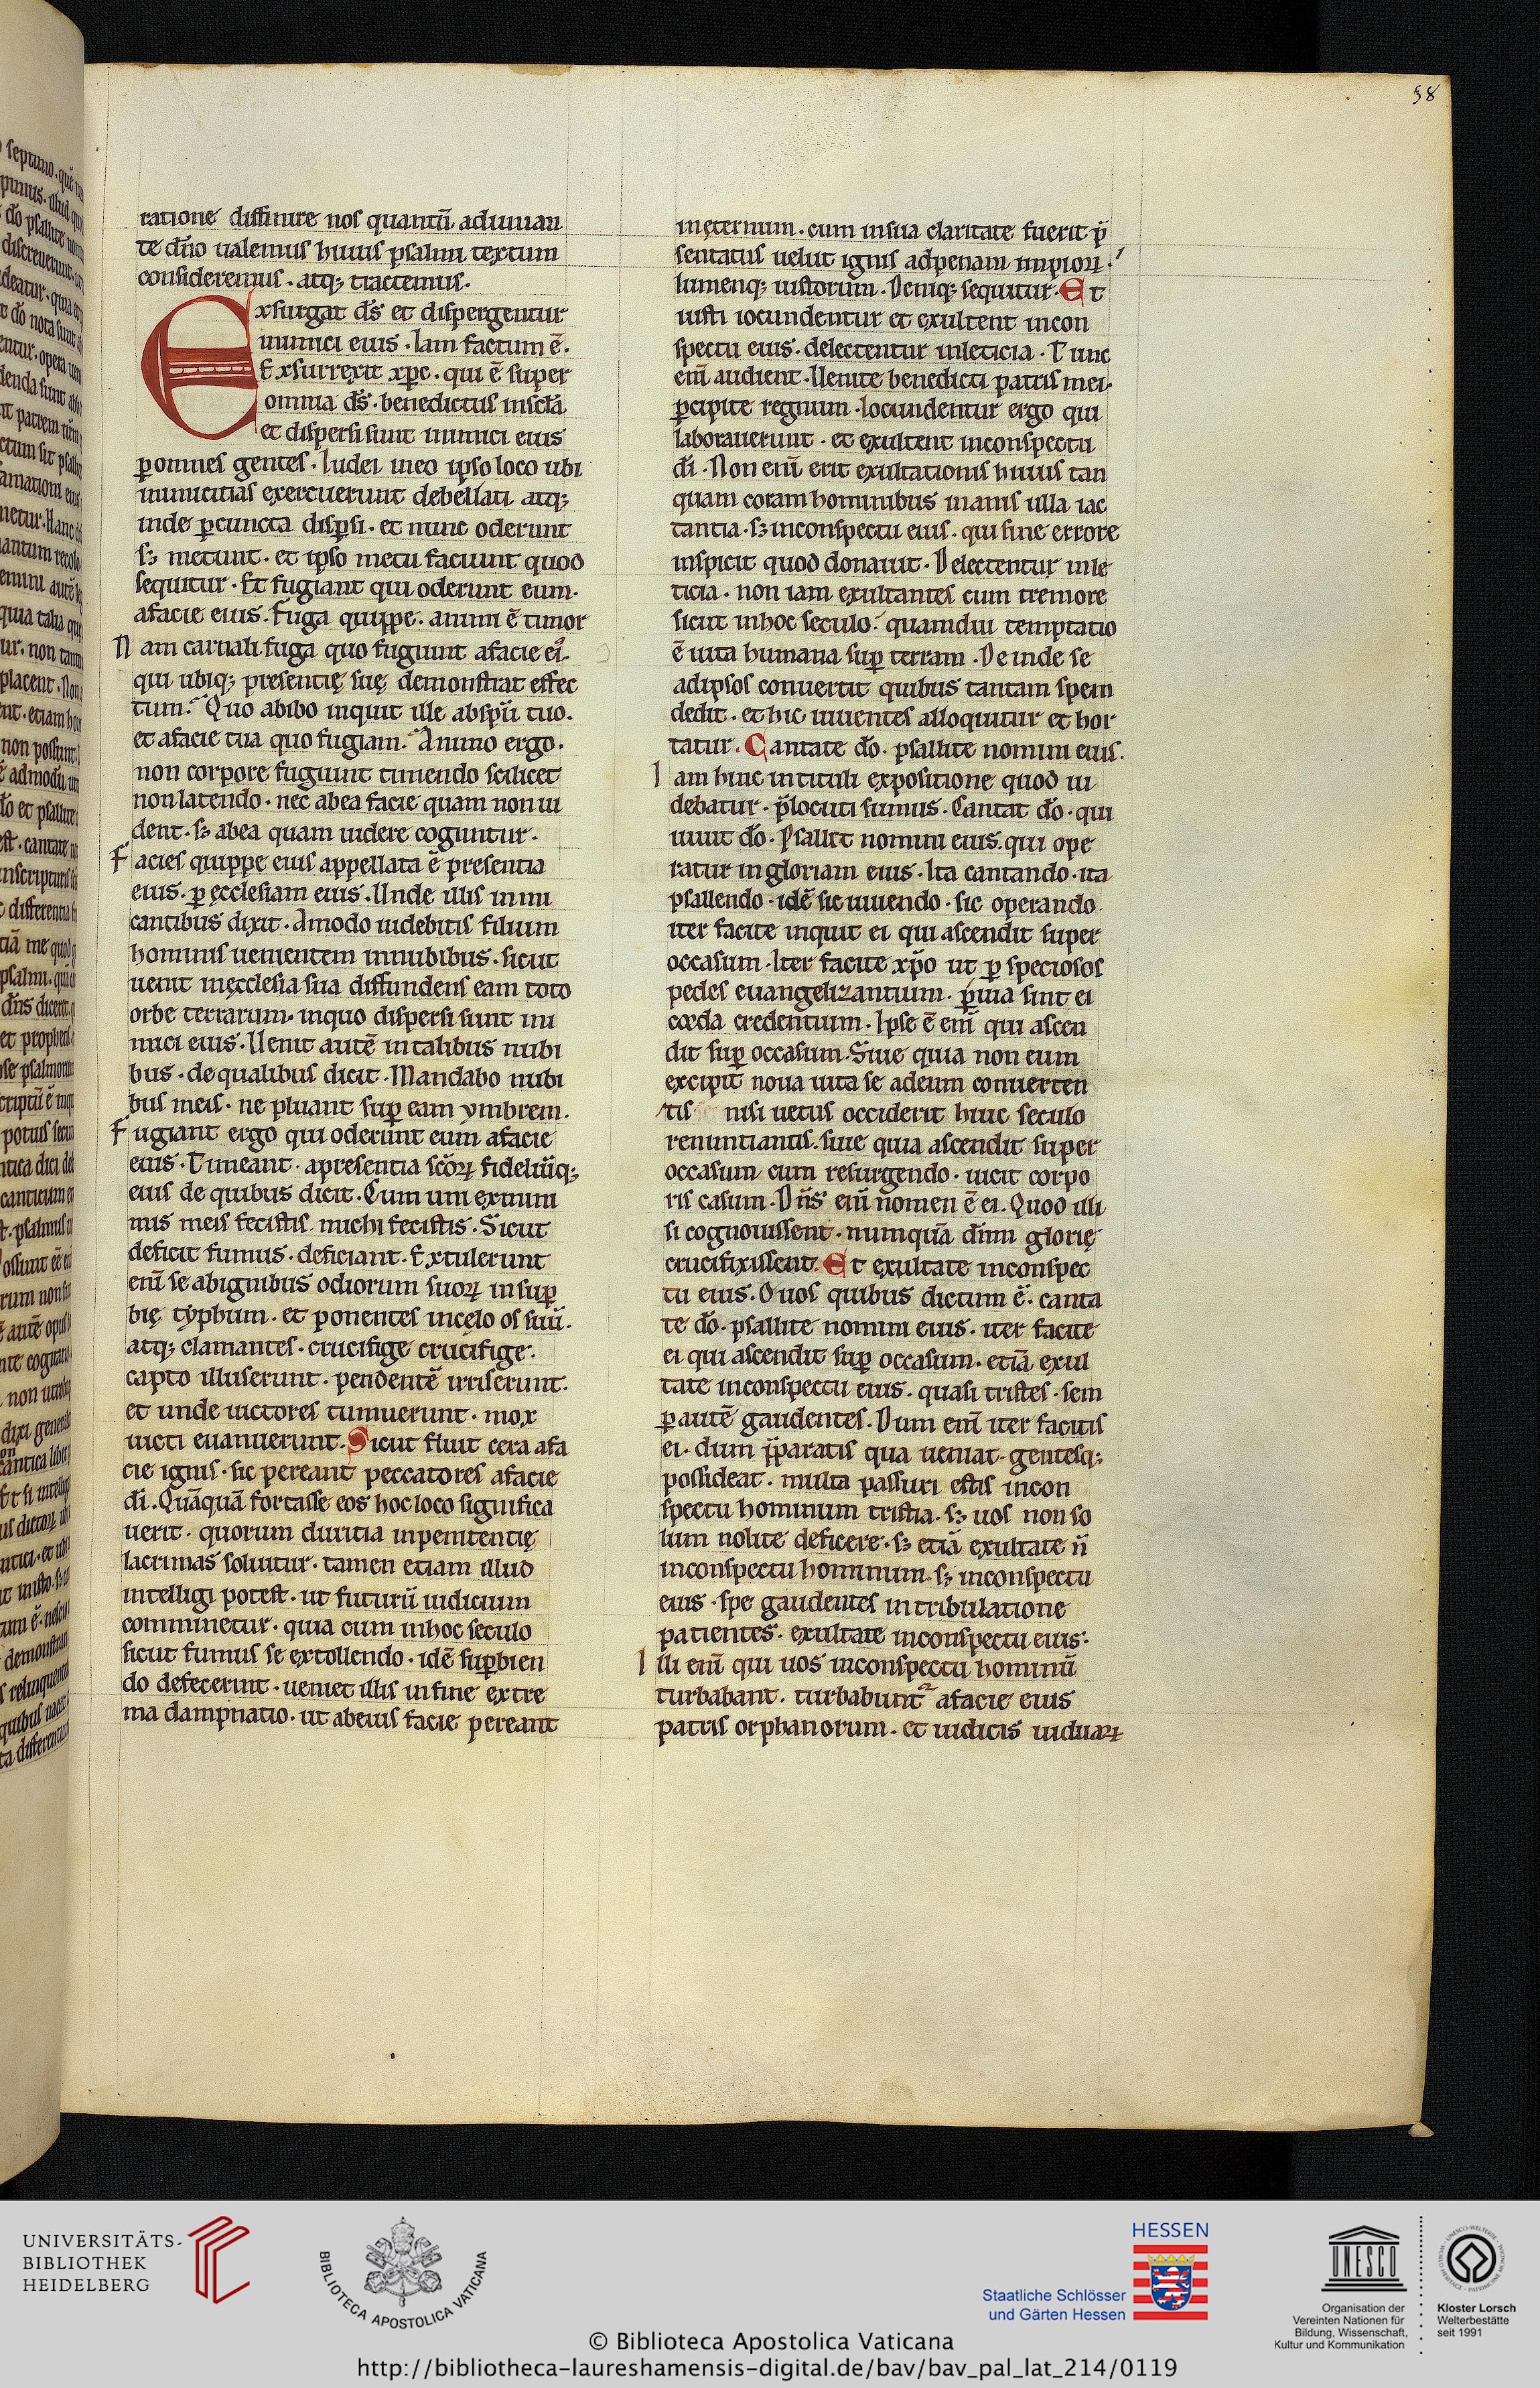 58
ratione diffinire nos quantū adiuuan
te dn̄o ualemus huius psalmi textum
consideremus . atq; tractemus.
Exsurgat ds̄ et dispergentur
inimici eius . Iam factum ē .
Exsurrexit xp̄c . qui ē super
omnia ds̄ . benedictus inscl̄a
et dispersi sunt inimici eius
ꝑomnes gentes . Iudei ineo ipso loco ubi
inimicitias exercuerunt debellati atq;
inde ꝑcuncta disꝑsi . et nunc oderunt
sꝫ metunt . et ipso metu faciunt quod
sequitur . Et fugiant qui oderunt eum .
afacie eius . Fuga quippe . animi ē timor
Nam carnali fuga quo fugiunt afacie ei᷒.
qui ubiq; presentię suę demonstrat effec
tum. Quo abibo inquit ille abspū tuo.
et afacie tua quo fugiam. Animo ergo.
non corpore fugiunt timendo scilicet
non latendo . nec abea facie quam non ui
dent . sꝫ abea quam uidere coguntur .
Facies quippe eius appellata ē presentia
eius . ꝑ ęcclesiam eius . Unde illis inimi
cantibus dixit . Amodo uidebitis filium
hominis uenientem innubibus . sicut
uenit inęcclesia sua diffundens eam toto
orbe terrarum . inquo dispersi sunt ini
mici eius . Uenit autē in talibus nubi
bus . de qualibus dicit . Mandabo nubi
bus meis . ne pluant suꝑ eam ymbrem .
Fugiant ergo qui oderunt eum afacie
eius . Timeant . apresentia sc̄oꝝ fideliūq;
eius de quibus dicit . Cum uni exmini
mis meis fecistis michi fecistis . Sicut
deficit fumus . deficiant . Extulerunt
eni̅ se abignibus odiorum suoꝝ insuꝑ
bię typhum . et ponentes incęlo os suū .
atq; clamantes . crucifige crucifige .
capto illuserunt . pendentē irriserunt .
et unde uictores tumuerunt . mox
uicti euanuerunt . Sicut fluit cera afa
cie ignis . sic pereant peccatores afacie
di̅ . Quāquā fortasse eos hoc loco significa
uerit . quorum duritia inpenitentię
lacrimas soluitur . tamen etiam illud
intelligi potest . ut futurū iudicium
comminetur . quia cum inhoc seculo
sicut fumus se extollendo . idē suꝑbien
do defecerint . ueniet illis infine extre
ma dampnatio . ut abeius facie pereant
inęternum . cum insua claritate fuerit p̄
sentatus uelut ignis adpenam impioꝝ .
lumenq; iustorum . Deniq; sequitur . Et
iusti iocundentur et exultent incon
spectu eius . delectentur inleticia . Tunc
eni̅ audient . Uenite benedicti patris mei .
ꝑcipite regnum . Iocundentur ergo qui
laborauerunt . et exultent inconspectu
di̅ . Non eni̅ erit exultationis huius tan
quam coram hominibus inanis ulla iac
tantia . sꝫ inconspectu eius . qui sine errore
inspicit quod donauit . Delectentur inle
ticia . non iam exultantes cum tremore
sicut inhoc seculo . quamdiu temptatio
ē uita humana suꝑ terram . Deinde se
adipsos conuertit quibus tantam spem
dedit . et hic uiuentes alloquitur et hor
tatur . Cantate dō . psallite nomini eius .
Iam hinc intituli expositione quod ui
debatur . p̄locuti sumus . Cantat dō . qui
uiuit dō . Psallit nomini eius . qui ope
ratur in gloriam eius . Ita cantando . ita
psallendo . idē sic uiuendo . sic operando .
iter facite inquit ei qui ascendit super
occasum . Iter facite xp̄o ut ꝑ speciosos
pedes euangelizantium . ꝑuia sint ei
corda credentium . Ipse ē eni̅ qui ascen
dit suꝑ occasum . Siue quia non eum
excipit noua uita se adeum conuerten
tis nisi uetus occiderit huic seculo
renuntiantis . siue quia ascendit super
occasum cum resurgendo . uicit corpo
ris casum . Dn̄s eni̅ nomen ē ei . Quod illi
si cognouissent . numquā dn̄m glorię
crucifixissent . Et exultate inconspec
tu eius . O uos quibus dictum ē . canta
te dō . psallite nomini eius . iter facite
ei qui ascendit suꝑ occasum . etiā exul
tate inconspectu eius . quasi tristes . sem
ꝑ autē gaudentes . Dum eni̅ iter facitis
ei . dum p̄paratis qua ueniat . gentesq;
possideat . multa passuri estis incon
spectu hominum tristia . sꝫ uos non so
lum nolite deficere . sꝫ etiā exultate n̄
inconspectu hominum . sꝫ inconspectu
eius . spe gaudentes intribulatione
patientes . exultate inconspectu eius .
Illi eni̅ qui uos inconspectu hominū
turbabant . turbabunt᷑ afacie eius
patris orphanorum . et iudicis uiduaꝝ
UNIVERSITÄTS-
BIBLIOTHEK
HEIDELBERG
BIBLIOTECA APOSTOLICA VATICANA
HESSEN
Staatliche Schlösser
und Gärten Hessen
UNESCO
Organisation der
Vereinten Nationen für
Bildung, Wissenschaft,
Kultur und Kommunikation
Kloster Lorsch
Welterbestätte
seit 1991
© Biblioteca Apostolica Vaticana
http://bibliotheca-laureshamensis-digital.de/bav/bav_pal_lat_214/0119